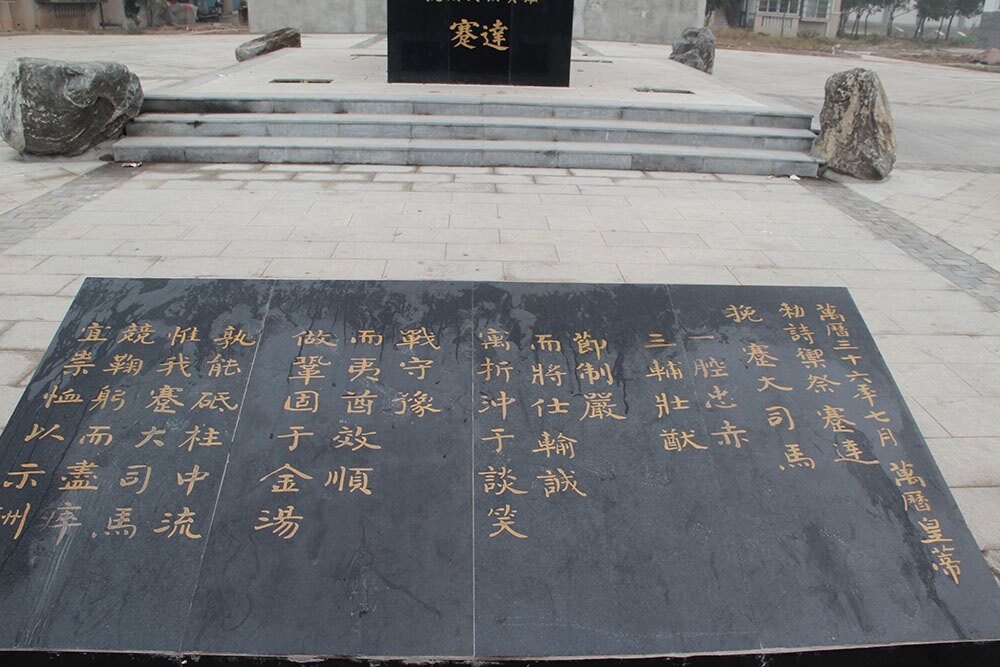 蹇達
萬曆三十六年七月 萬曆皇蒂
勑詩禦祭 蹇達
挽 蹇大司馬
一腔忠赤
三輔壯猷
節制嚴
而將仕輸誠
寓折沖于談笑
戰守豫
而夷酋效順
做鞏固于金湯
孰能砥柱中流
惟我蹇大司馬
競鞠躬而盡瘁
宜崇恤以示洲